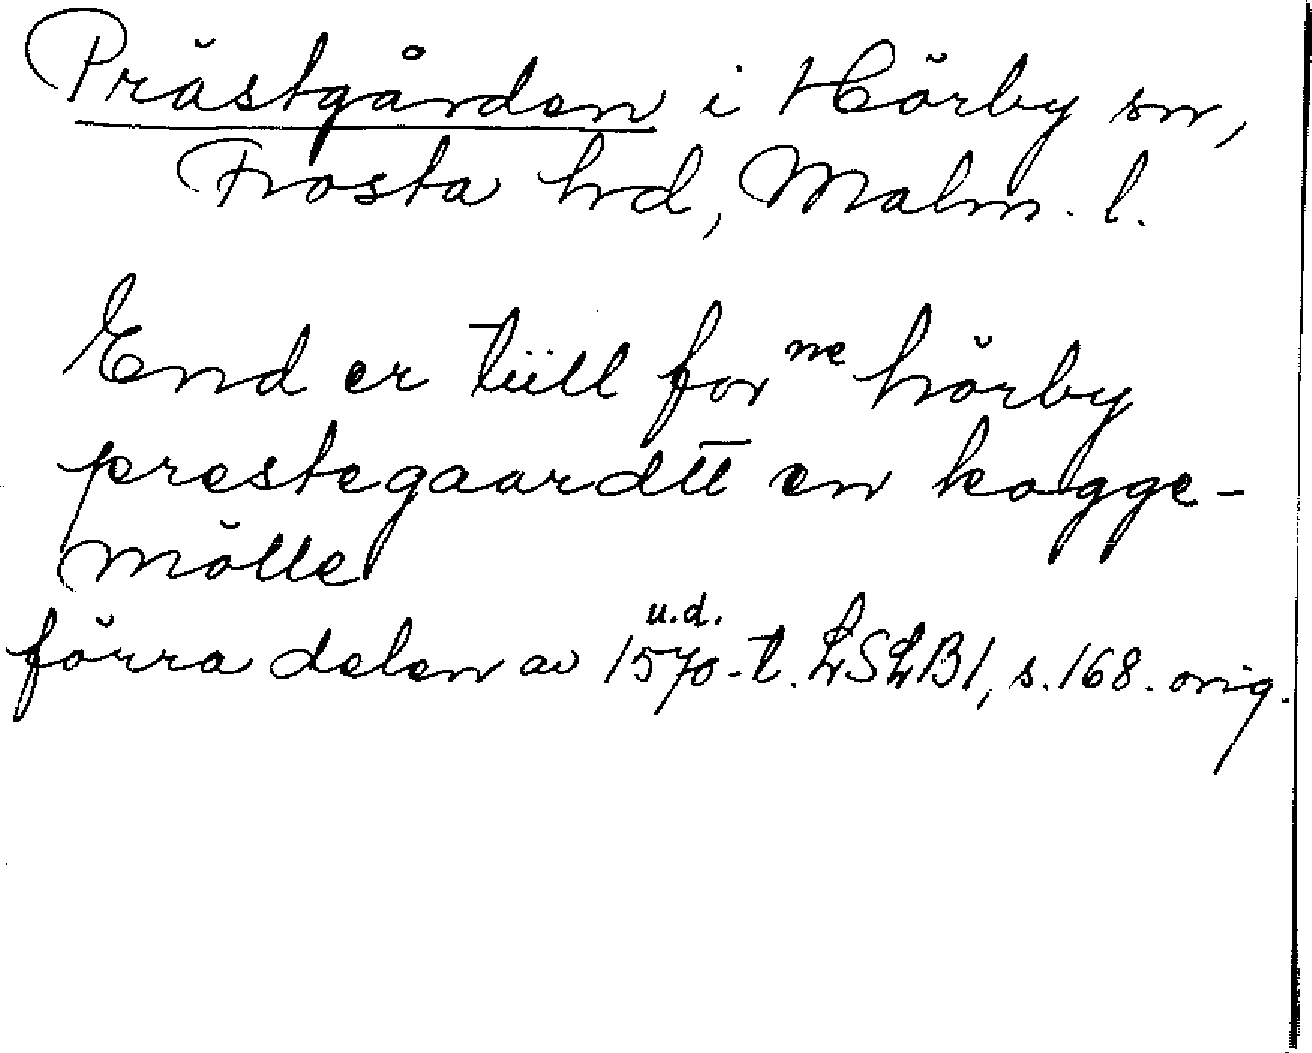 Prästgården i Hörby sn,
Frosta hd, Malm. l.
End er tiill for ne hörby
prestegaardtt en kagge-
mölle
u.d.
förra delen av 1570-t. LSLB1, s. 168. orig.